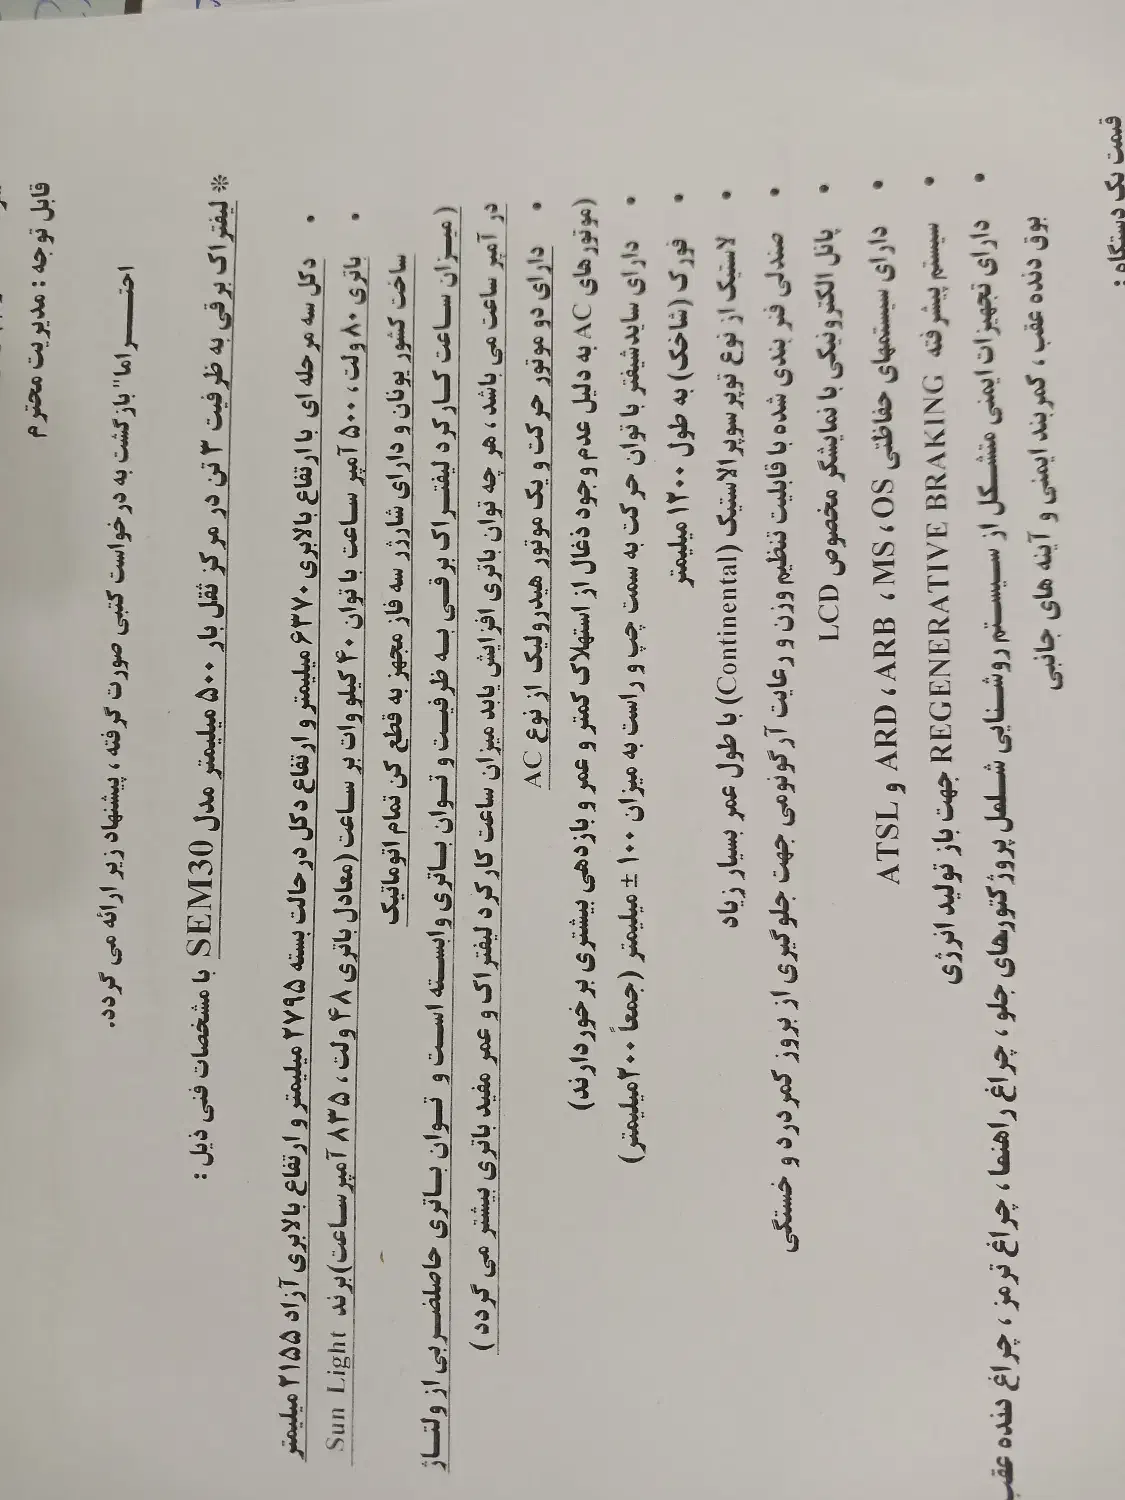 قابل توجه : مدیریت محترم
احتـــــراما" بازگشت به درخواست کتبی صورت گرفته ، پیشنهاد زیر ارائه می گردد.
* لیفتراک برقی به ظرفیت ۳ تن در مرکز ثقل بار ۵۰۰ میلیمتر مدل SEM30 با مشخصات فنی ذیل :
• دکل سه مرحله ای با ارتفاع بالابری ۶۳۷۰ میلیمتر و ارتفاع دکل در حالت بسته ۲۷۹۵ میلیمتر و ارتفاع بالابری آزاد ۲۱۵۵ میلیمتر
• باتری ۸۰ ولت ، ۵۰۰ آمپر ساعت با توان ۴۰ کیلو وات بر ساعت (معادل باتری ۴۸ ولت ، ۸۳۵ آمپر ساعت) برند Sun Light
ساخت کشور یونان و دارای شارژر سه فاز مجهز به قطع کن تمام اتوماتیک
( میزان ساعت کارکرد لیفتراک برقی به ظرفیت و توان باتری وابسته است و توان باتری حاصلضربی از ولتاژ
در آمپر ساعت می باشد ، هر چه توان باتری افزایش یابد میزان ساعت کارکرد لیفتراک و عمر مفید باتری بیشتر می گردد )
• دارای دو موتور حرکت و یک موتور هیدرولیک از نوع AC
(موتورهای AC به دلیل عدم وجود ذغال از استهلاک کمتر و عمر و بازدهی بیشتری برخوردارند)
• دارای سایدشیفتر با توان حرکت به سمت چپ و راست به میزان ۱۰۰ ± میلیمتر (جمعاً ۲۰۰ میلیمتر)
• فورک (شاخک) به طول ۱۲۰۰ میلیمتر
• لاستیک از نوع توپر سوپر الاستیک (Continental) با طول عمر بسیار زیاد
• صندلی فنر بندی شده با قابلیت تنظیم وزن و رعایت آرگونومی جهت جلوگیری از بروز کمر درد و خستگی
• پانل الکترونیکی با نمایشگر مخصوص LCD
• دارای سیستمهای حفاظتی MS ، OS ، ARD ، ARB و ATSL
• سیستم پیشرفته REGENERATIVE BRAKING جهت باز تولید انرژی
• دارای تجهیزات ایمنی متشکل از سیستم روشنایی شامل پروژکتورهای جلو ، چراغ راهنما ، چراغ ترمز ، چراغ دنده عقب
بوق دنده عقب ، کمربند ایمنی و آینه های جانبی
قیمت یک دستگاه :